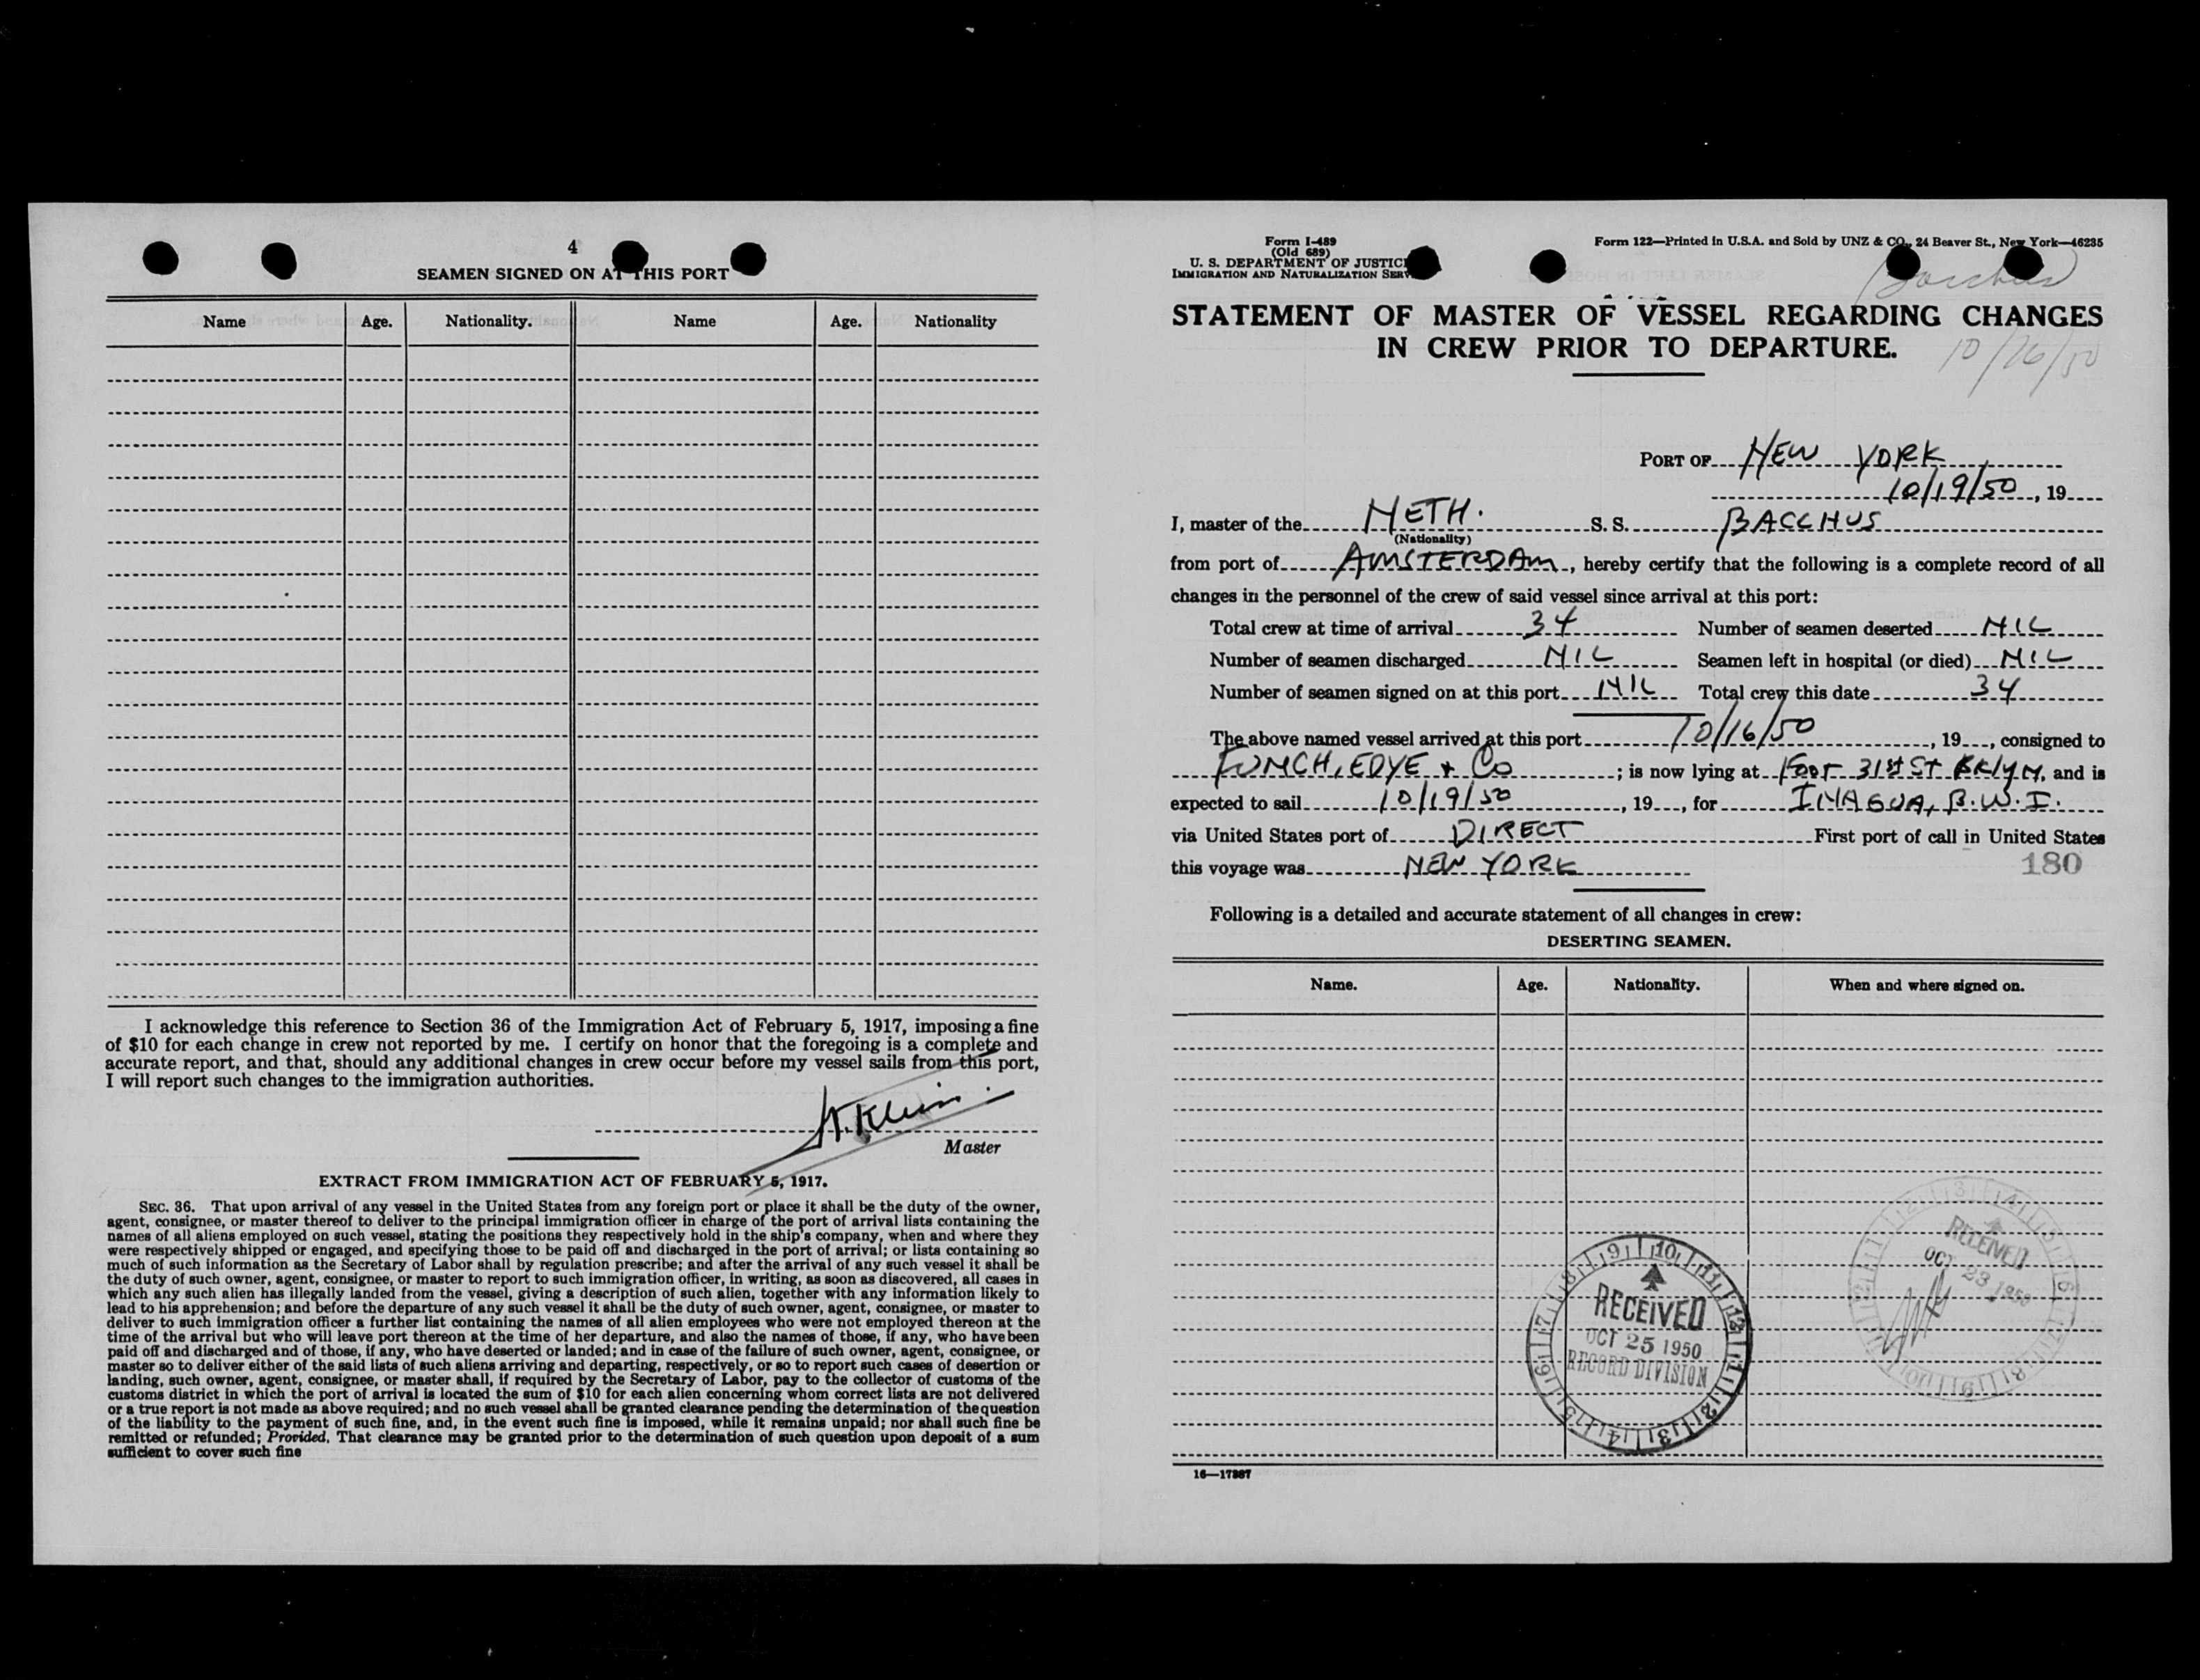 4
SEAMEN SIGNED ON AT THIS PORT
Name Age. Nationality. Name Age. Nationality
I acknowledge this reference to Section 36 of the Immigration Act of February 5, 1917, imposing a fine
of $10 for each change in crew not reported by me. I certify on honor that the foregoing is a complete and
accurate report, and that, should any additional changes in crew occur before my vessel sails from this port,
I will report such changes to the immigration authorities.
Master
EXTRACT FROM IMMIGRATION ACT OF FEBRUARY 5, 1917.
SEC. 36. That upon arrival of any vessel in the United States from any foreign port or place it shall be the duty of the owner,
agent, consignee, or master thereof to deliver to the principal immigration officer in charge of the port of arrival lists containing the
names of all aliens employed on such vessel, stating the positions they respectively hold in the ship's company, when and where they
were respectively shipped or engaged, and specifying those to be paid off and discharged in the port of arrival; or lists containing so
much of such information as the Secretary of Labor shall by regulation prescribe; and after the arrival of any such vessel it shall be
the duty of such owner, agent, consignee, or master to report to such immigration officer, in writing, as soon as discovered, all cases in
which any such alien has illegally landed from the vessel, giving a description of such alien, together with any information likely to
lead to his apprehension; and before the departure of any such vessel it shall be the duty of such owner, agent, consignee, or master to
deliver to such immigration officer a further list containing the names of all alien employees who were not employed thereon at the
time of the arrival but who will leave port thereon at the time of her departure, and also the names of those, if any, who have been
paid off and discharged and of those, if any, who have deserted or landed; and in case of the failure of such owner, agent, consignee, or
master so to deliver either of the said lists of such aliens arriving and departing, respectively, or so to report such cases of desertion or
landing, such owner, agent, consignee, or master shall, if required by the Secretary of Labor, pay to the collector of customs of the
customs district in which the port of arrival is located the sum of $10 for each alien concerning whom correct lists are not delivered
or a true report is not made as above required; and no such vessel shall be granted clearance pending the determination of the question
of the liability to the payment of such fine, and, in the event such fine is imposed, while it remains unpaid; nor shall such fine be
remitted or refunded; Provided, That clearance may be granted prior to the determination of such question upon deposit of a sum
sufficient to cover such fine
Form I-489
(Old 689)
U. S. DEPARTMENT OF JUSTIC
IMMIGRATION AND NATURALIZATION SERV
Form 122—Printed in U.S.A. and Sold by UNZ & CO., 24 Beaver St., New York—46235
STATEMENT OF MASTER OF VESSEL REGARDING CHANGES
IN CREW PRIOR TO DEPARTURE.
10/26/50
PORT OF NEW YORK
10/19/50, 19
I, master of the NETH. S. S. BACCHUS
(Nationality)
from port of AMSTERDAM, hereby certify that the following is a complete record of all
changes in the personnel of the crew of said vessel since arrival at this port:
Total crew at time of arrival 34 Number of seamen deserted NIL
Number of seamen discharged NIL Seamen left in hospital (or died) NIL
Number of seamen signed on at this port NIL Total crew this date 34
The above named vessel arrived at this port 10/16/50, 19, consigned to
FUNCH, EDYE + Co; is now lying at Foot 31st ST BKlyN, and is
expected to sail 10/19/50, 19, for INAGUA, B.W.I.
via United States port of DIRECT First port of call in United States
this voyage was NEW YORK
180
Following is a detailed and accurate statement of all changes in crew:
DESERTING SEAMEN.
Name. Age. Nationality. When and where signed on.
RECEIVED
OCT 25 1950
RECORD DIVISION
RECEIVED
OCT 23 1950
16—17887